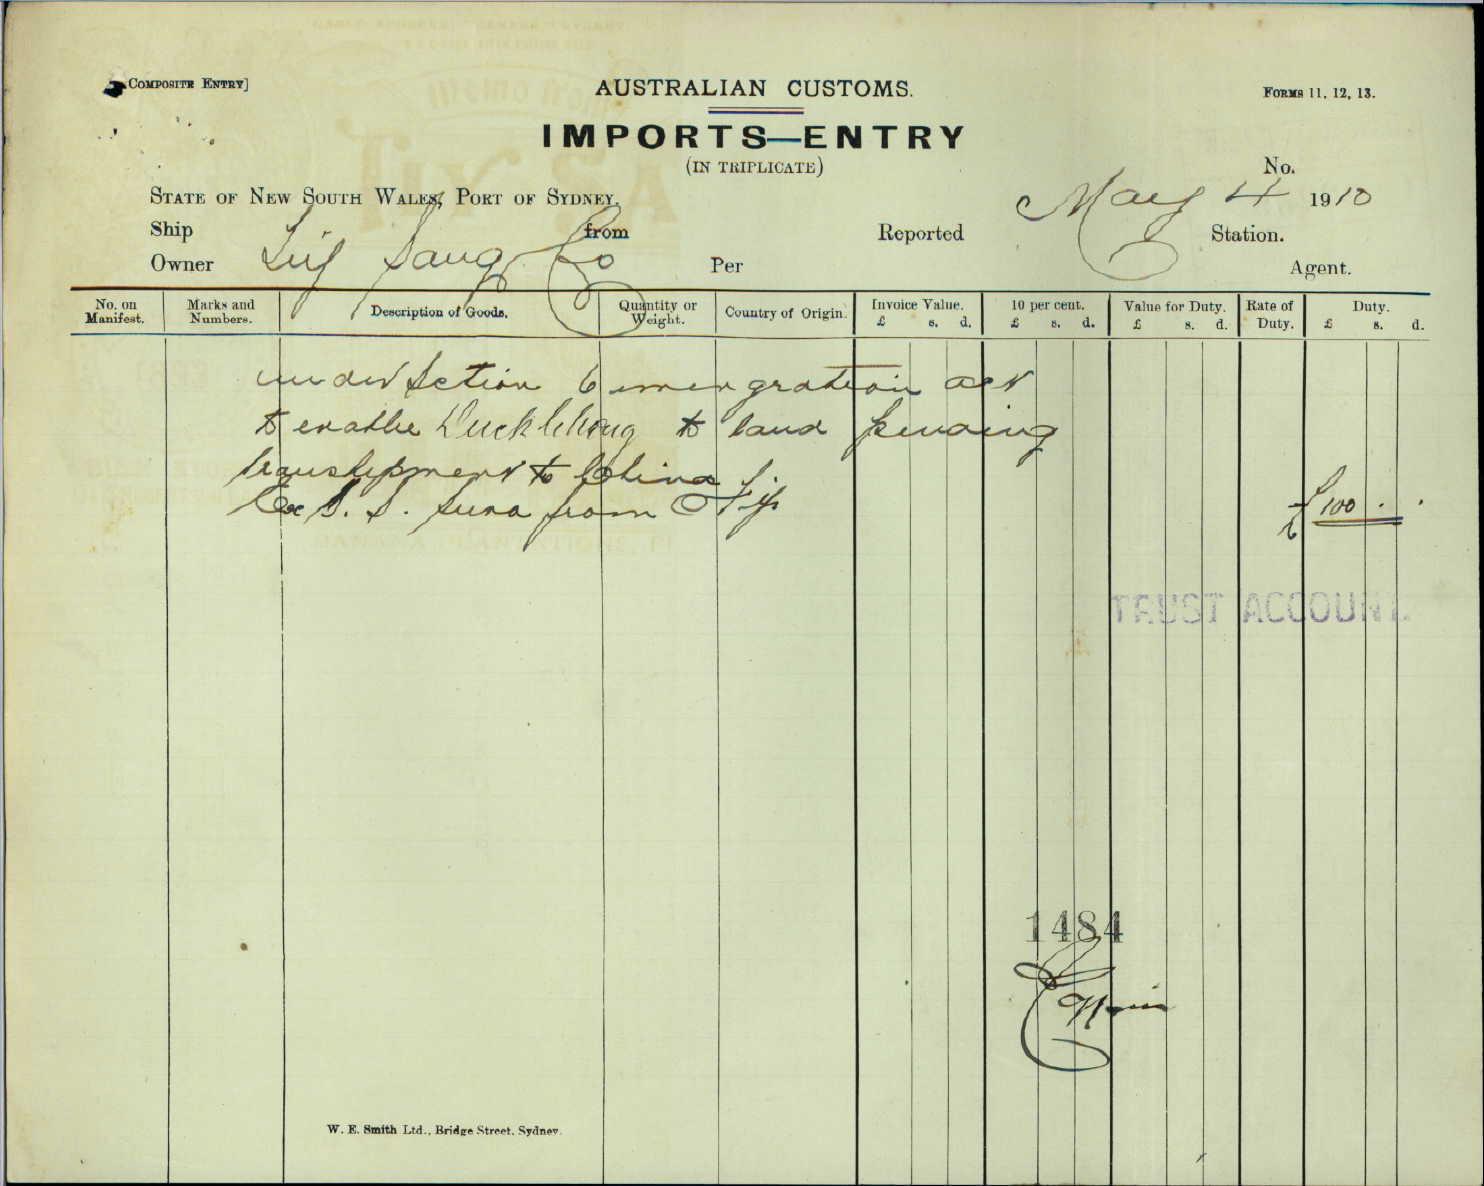 Composite Entry]
AUSTRALIAN CUSTOMS.
Forms 11, 12, 13.
IMPORTS—ENTRY
(IN TRIPLICATE)
No.
State of New South Wales, Port of Sydney.
May 4 1910
Ship from Reported Station.
Owner Sang Co Per Agent.
No. on Manifest. Marks and Numbers. Description of Goods. Quantity or Weight. Country of Origin. Invoice Value. £ s. d. 10 per cent. £ s. d. Value for Duty. £ s. d. Rate of Duty. Duty. £ s. d.
under Section 6 act
to enable to land pending
transhipment to China
Ex S. S. Suva from Fiji £100
TRUST ACCOUNT.
1484
W. E. Smith Ltd., Bridge Street, Sydney.